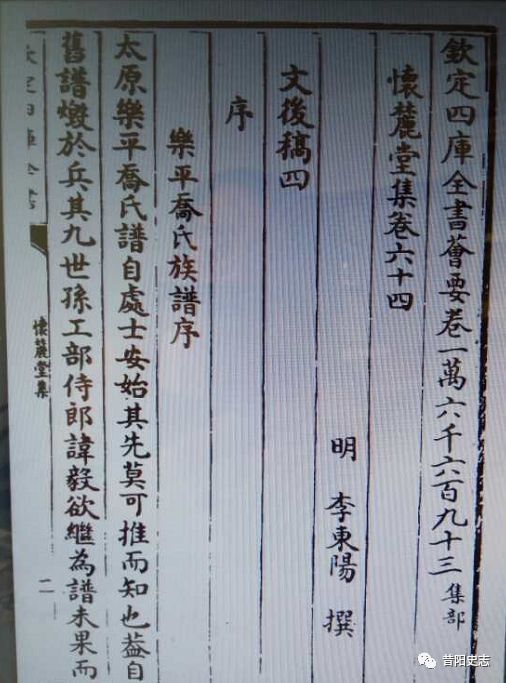 欽定四庫全書薈要卷一萬六千六百九十三 集部
懷麓堂集卷六十四
明 李東陽 撰
文後稿四
序
樂平喬氏族譜序
太原樂平喬氏譜自處士安始其先莫可推而知也葢自
舊譜燬於兵其九世孫工部侍郎諱毅欲繼為譜未果而
欽定四庫全書
懷麓堂集
二
昔阳史志